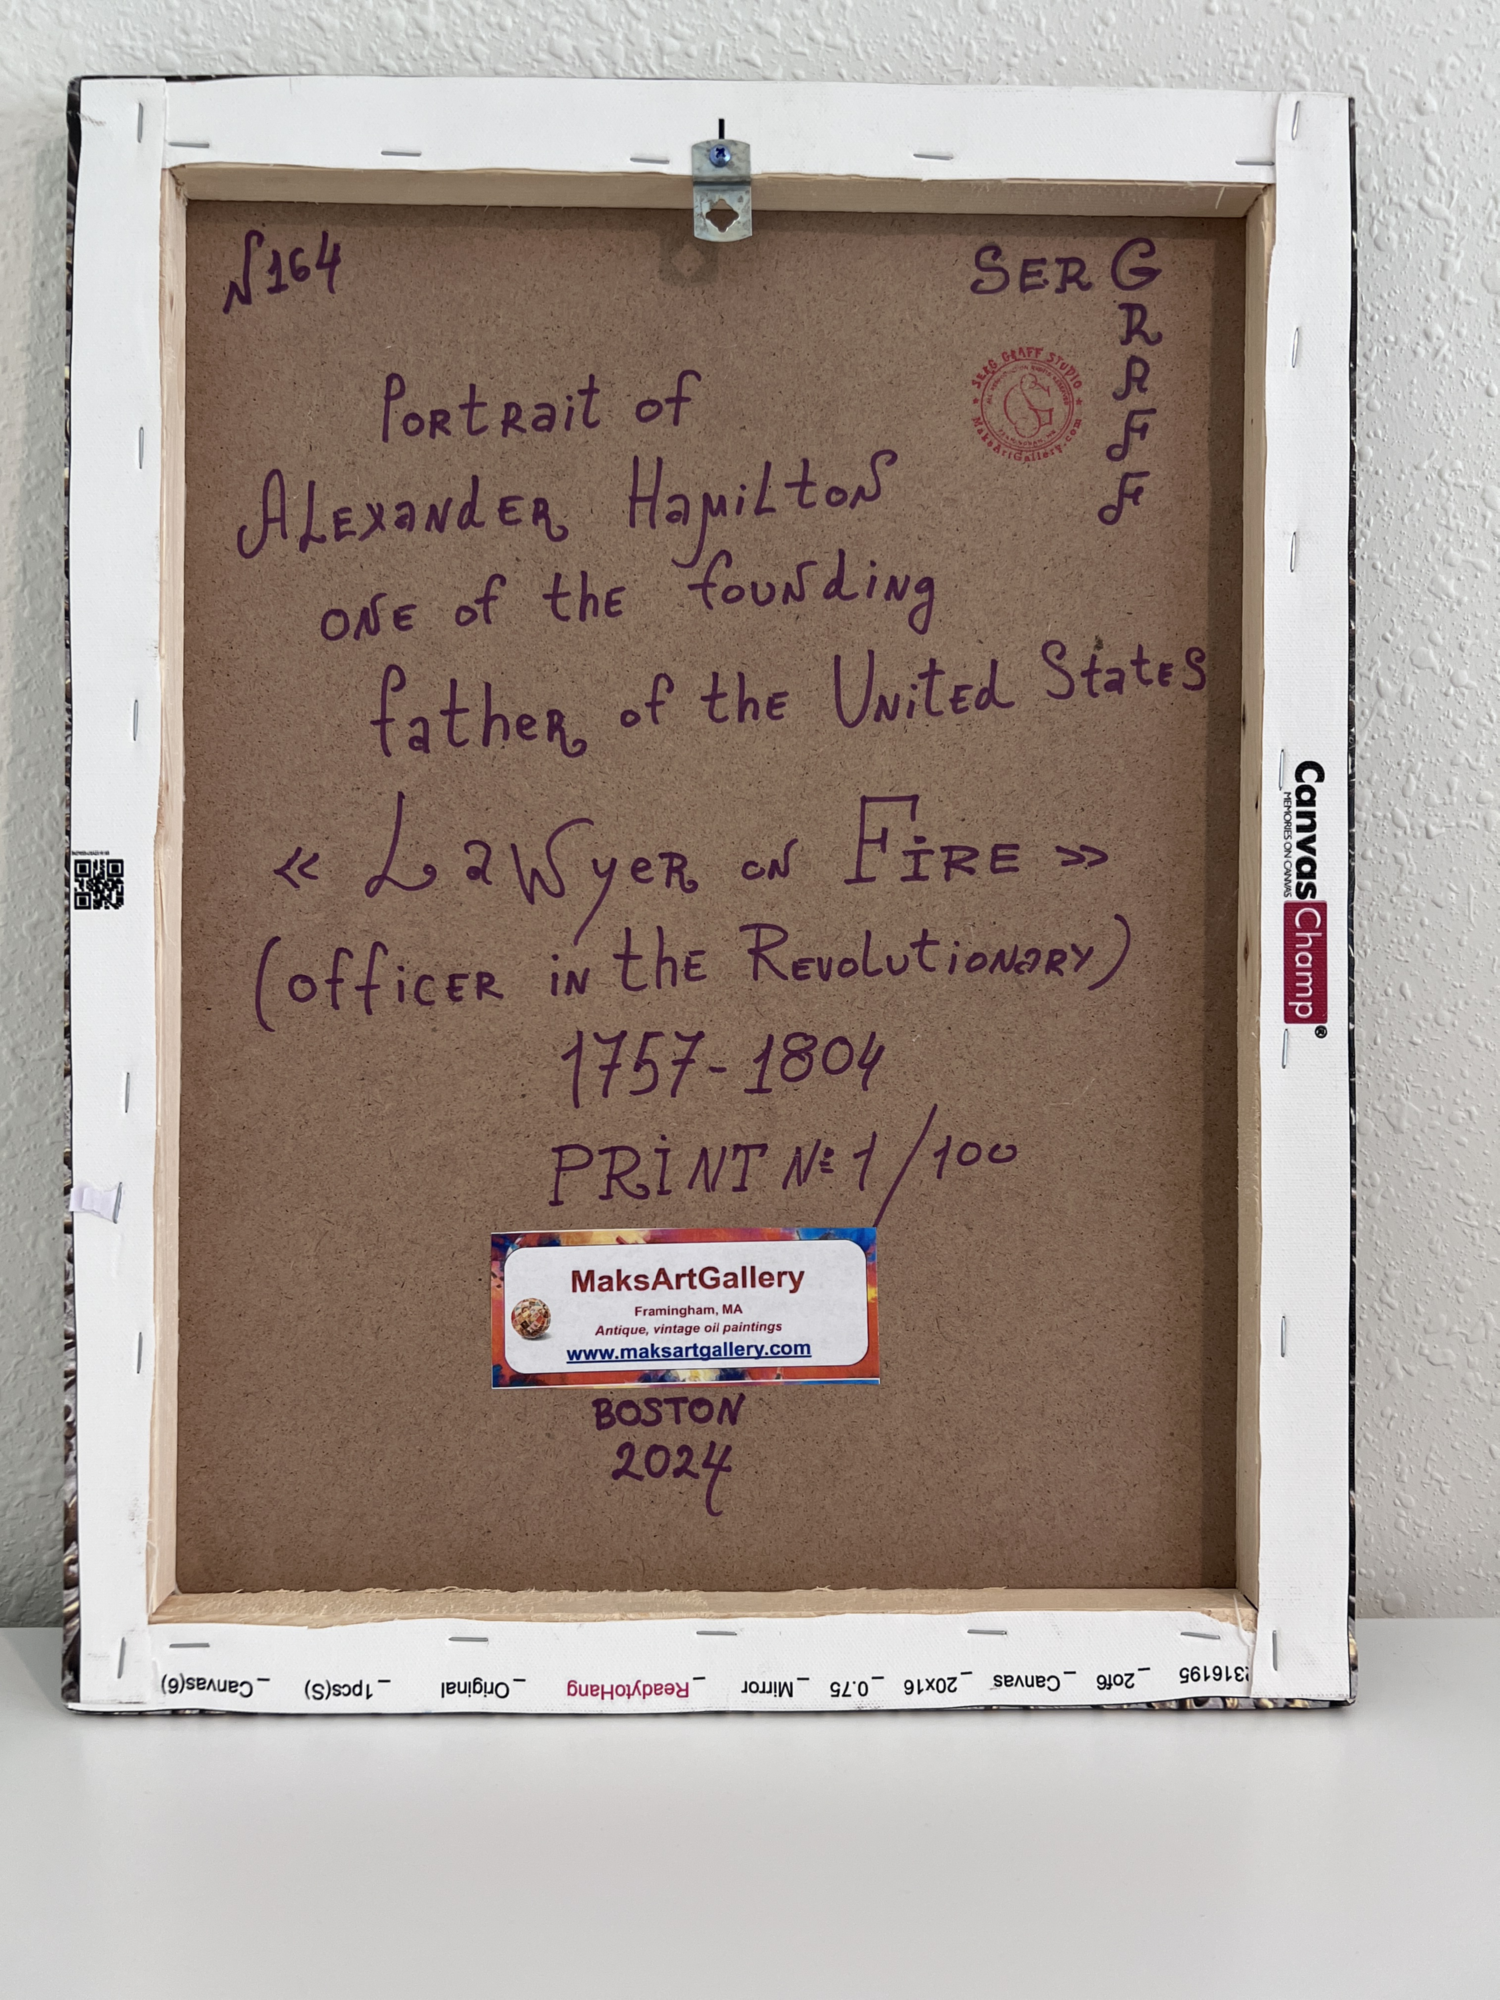 N164
SERG
R
A
F
F
SERG GRAFF STUDIO
MaksArtGallery.com
Portrait of
Alexander Hamilton
one of the founding
father of the United States
« Lawyer on Fire »
(officer in the Revolutionary)
1757-1804
PRINT №1/100
MaksArtGallery
Framingham, MA
Antique, vintage oil paintings
www.maksartgallery.com
BOSTON
2024
CanvasChamp®
MEMORIES ON CANVAS
316195 _2of6 _Canvas _20x16 _0.75 _Mirror _ReadytoHang _Original _1pcs(S) _Canvas(6)